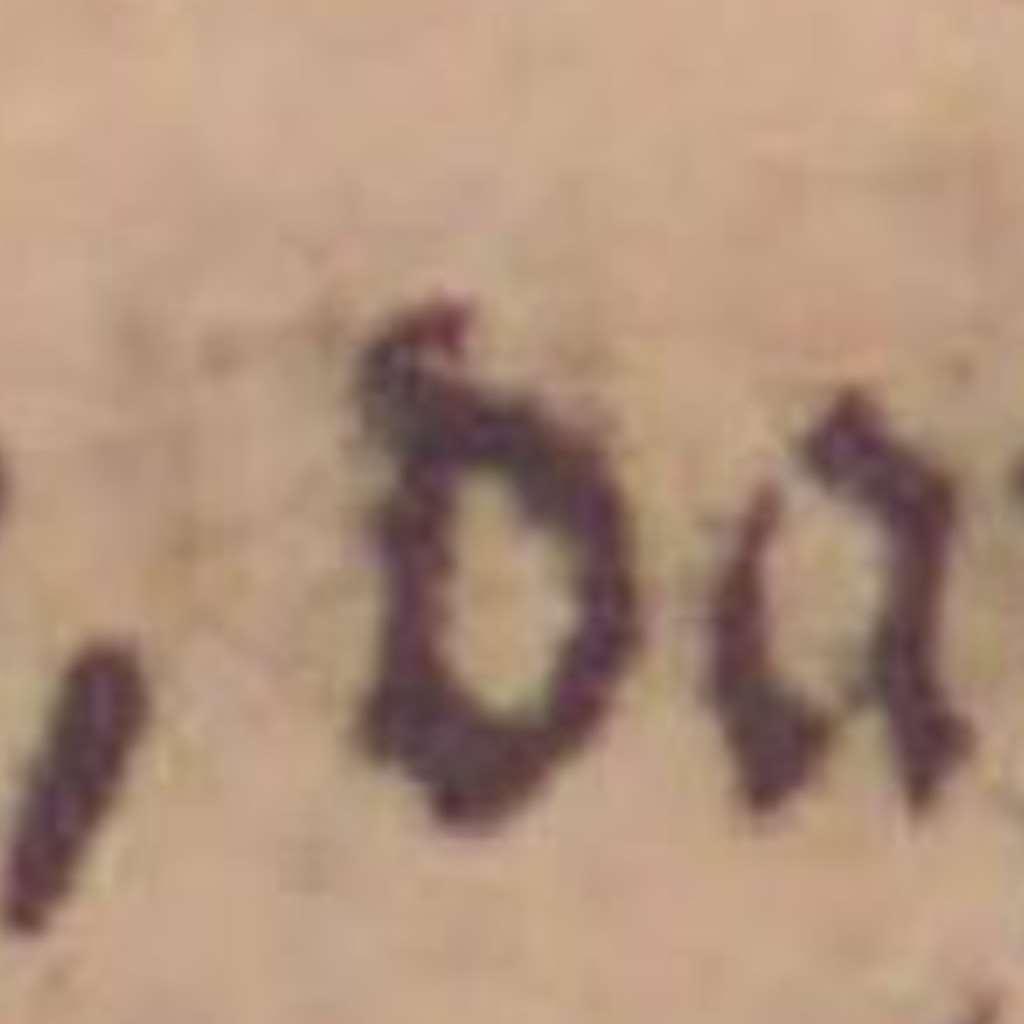 , da